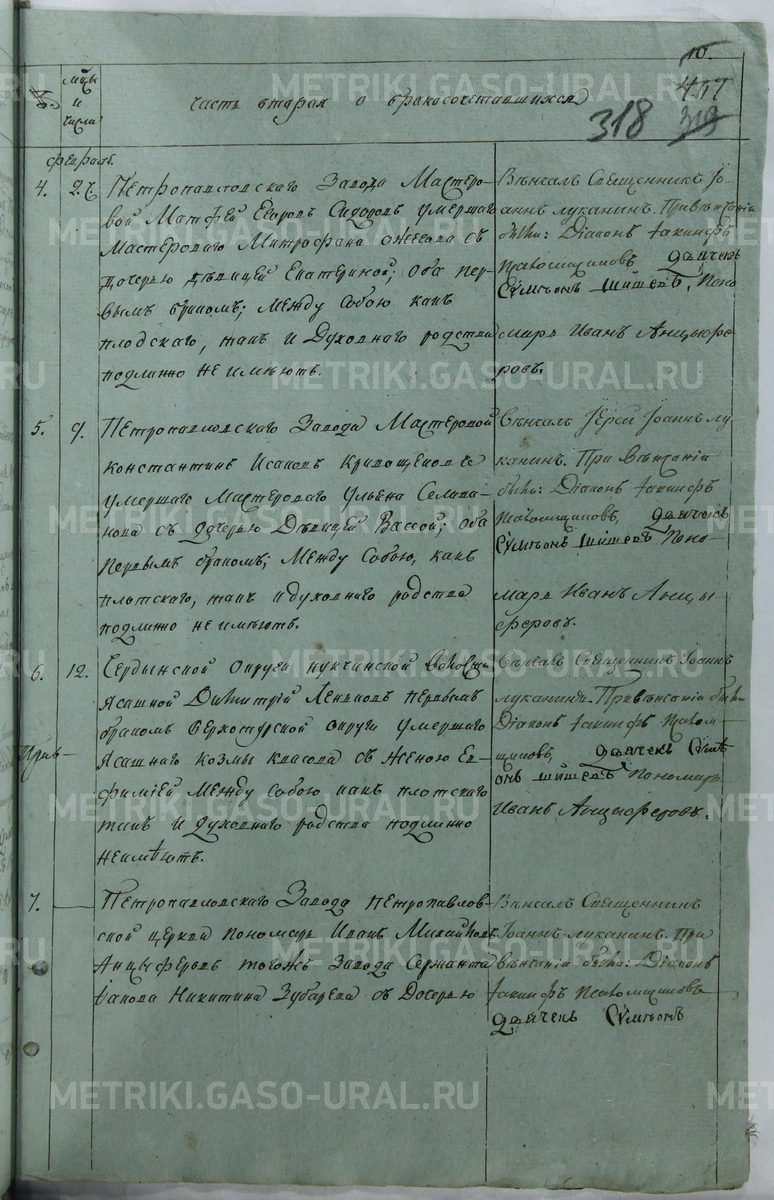 №
мцы и числа
часть вторая о бракосочетавшихся
318
Февраль.
4.
Петропавловскаго Завода Мастеро-
вой Матфей Егоровъ Сидоровъ умершаго
Мастероваго Митрофана Ожегова съ
дочерью дѣвицей Екатериной; оба пер
вымъ бракомъ; Между собою какъ
плодскаго, такъ и Духовнаго родства
подлинно не имѣютъ.
Вѣнчалъ Священникъ Іо-
аннъ луканинъ. При вѣнчаніи
были: Діаконъ Іакинфъ
дьячекъ
Сѵмеонъ Шишевъ, поно
марь Иванъ Анцыфе
ровъ.
5.
9.
Петропавловскаго Завода Мастеровой
константинъ Исаковъ Кривощековъ
умершаго Мастероваго Ульяна Селива
нова съ дочерью Дѣвицей Вассой; оба
первымъ бракомъ; Между Собою, какъ
плотскаго, такъ и духовнаго родства
подлинно не имѣютъ.
Вѣнчалъ Іерей Іоаннъ лу
канинъ. При Вѣнчаніи
были: Діаконъ Іакинфъ
дьячекъ
Сѵмеонъ Шишевъ поно-
марь Иванъ Анцы
феровъ.
6.
12.
Чердынской округи
Ясашной Димитрій первымъ
бракомъ Верхотурской округи умершаго
Ясашнаго козмы власова съ женою Ев-
фиміей между собою какъ плотскаго
такъ и духовнаго родства подлинно
неимѣютъ.
Вѣнчалъ Священникъ Іоаннъ
луканинъ. При вѣнчаніи были
Діаконъ Іакинфъ
дьячекъ Сѵме
онъ Шишевъ пономарь
Иванъ Анцыферовъ.
7.
Петропавловскаго Завода петропавлов-
ской церкви пономарь Иванъ Михайловъ
Анцыферовъ тогожъ Завода Сержанта
Іакова Никитина Зубарева съ Дочерью
Вѣнчалъ Священникъ
Іоаннъ луканинъ. При
вѣнчаніи были: Діаконъ
Іакинфъ
дьячекъ Сѵмеонъ
METRIKI.GASO-URAL.RU